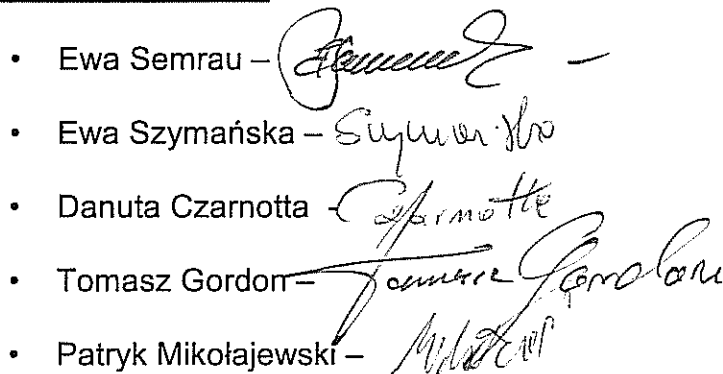 • Ewa Semrau –
• Ewa Szymańska – Szymańska
• Danuta Czarnotta - Czarnotta
• Tomasz Gordon – Tomasz Gordon
• Patryk Mikołajewski –